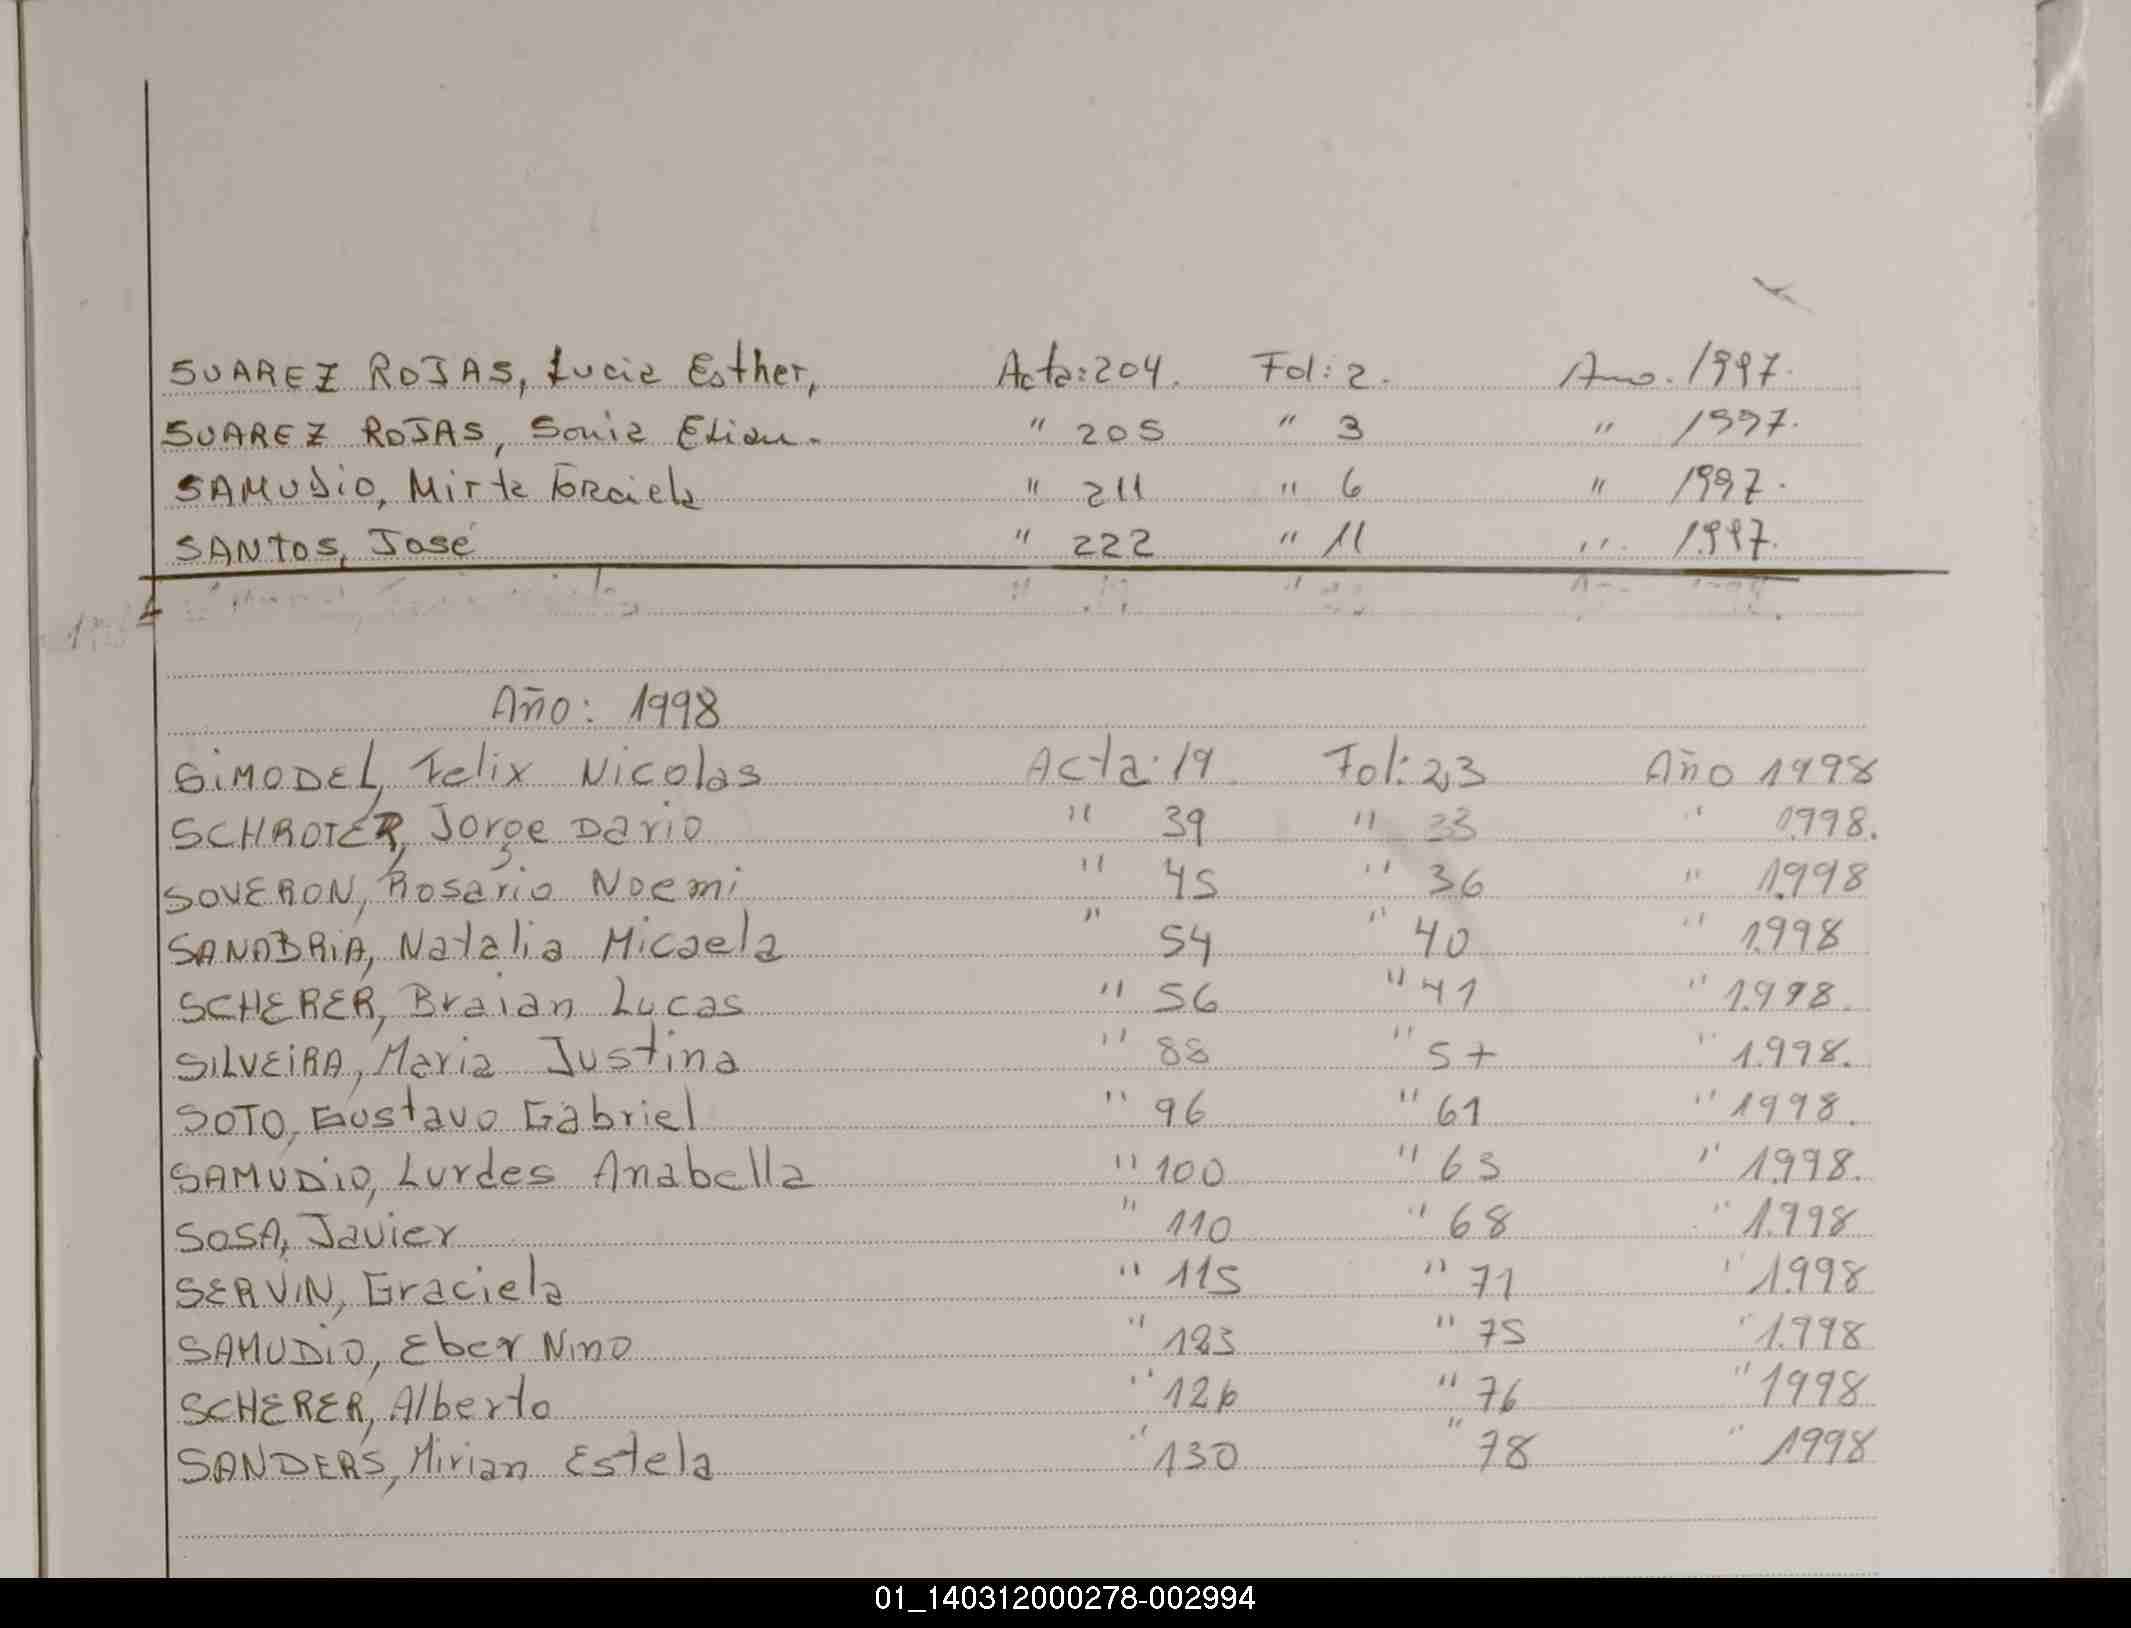 SUAREZ ROJAS, Lucia Esther, Acta: 204. Fol: 2. Ano. 1997.
SUAREZ ROJAS, Sonia Elian. " 205 " 3 " 1997.
SAMUDIO, Mirta Graciela " 211 " 6 " 1997.
SANTOS, José " 222 " 11 " 1997.
Año: 1998
SIMODEL, Felix Nicolas Acta: 19. Fol: 23 Año 1998
SCHROTER, Jorge Dario " 39 " 33 " 1998.
SOVERON, Rosario Noemi " 45 " 36 " 1.998
SANABRIA, Natalia Micaela " 54 " 40 " 1.998
SCHERER, Braian Lucas " 56 " 41 " 1.998.
SILVEIRA, Maria Justina " 88 " 57 " 1.998.
SOTO, Gustavo Gabriel " 96 " 61 " 1998.
SAMUDIO, Lurdes Anabella " 100 " 63 " 1.998.
SOSA, Javier " 110 " 68 " 1.998
SERVIN, Graciela " 115 " 71 " 1.998
SAMUDIO, Eber Nino " 123 " 75 " 1.998
SCHERER, Alberto " 126 " 76 " 1998
SANDERS, Mirian Estela " 130 " 78 " 1998
01_140312000278-002994